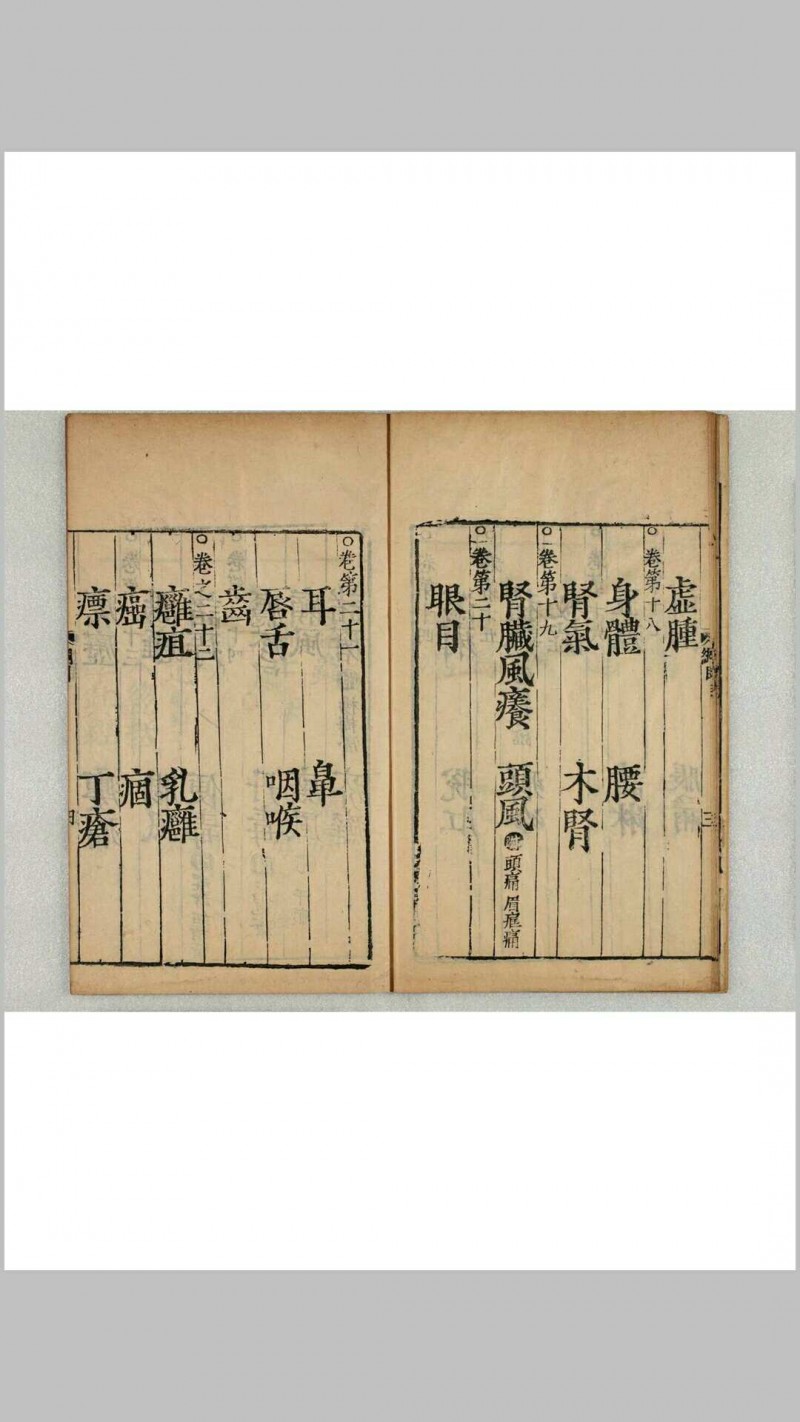 虛腫
卷第十八
身體 腰
腎氣 木腎
卷第十九
腎臟風癢 頭風 頭痛 眉痛
卷第二十
眼目
卷第二十一
耳 鼻
唇舌 咽喉
齒
卷之二十二
癰疽 乳癰
癌 痼
瘭 丁瘡